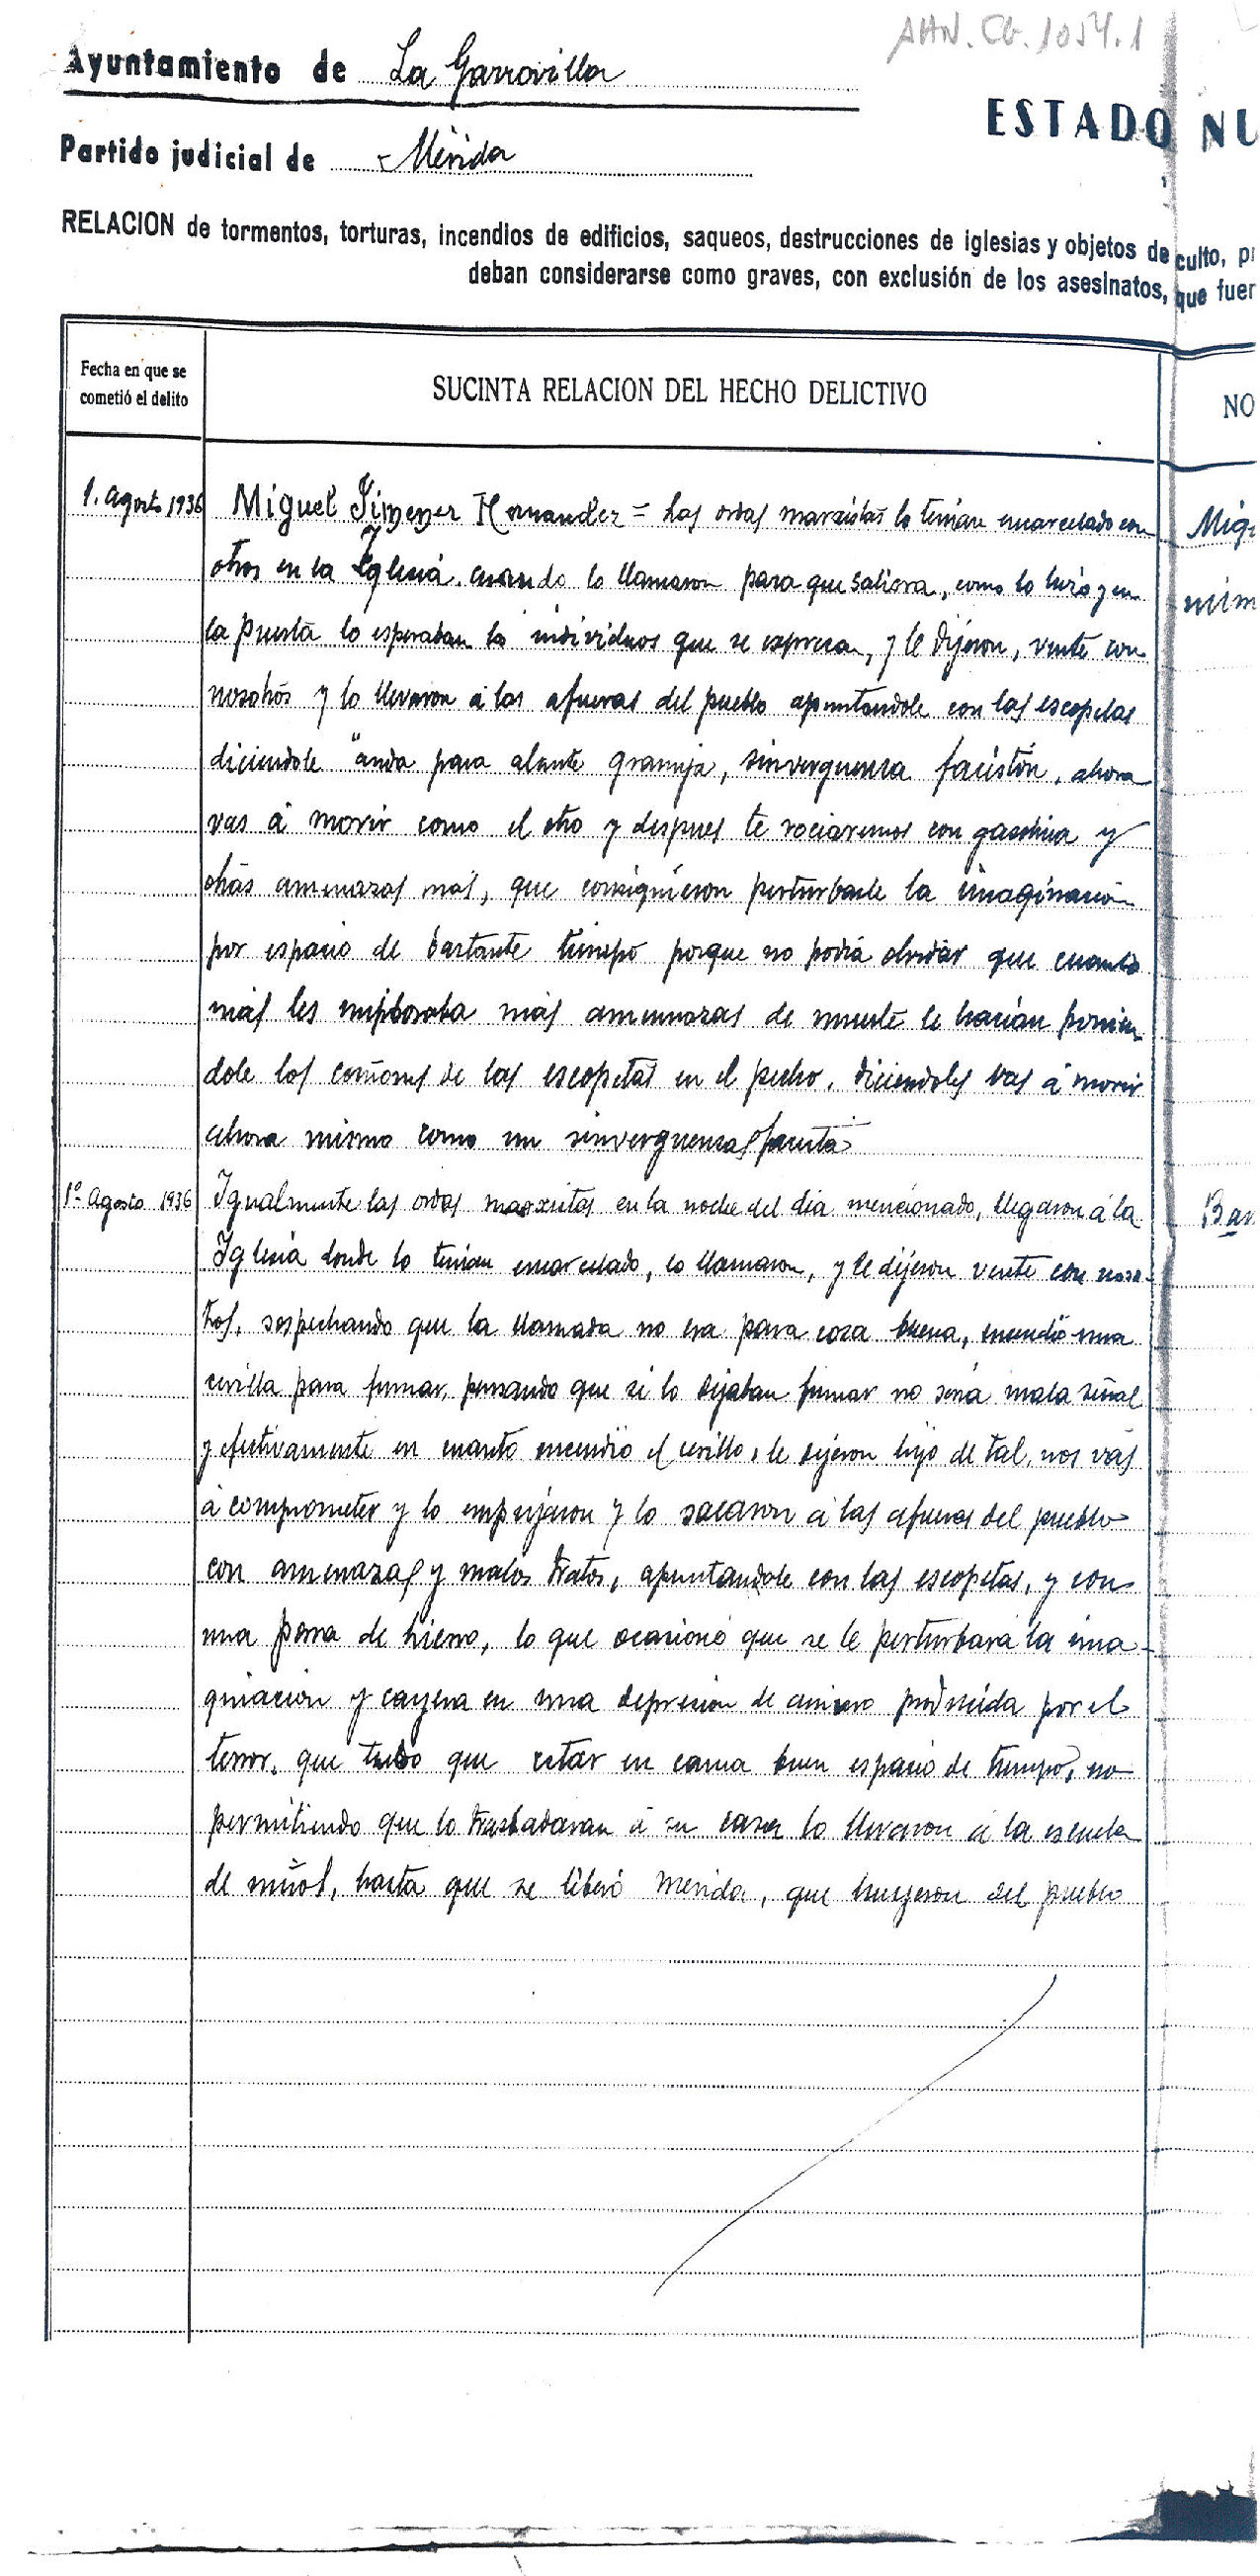 AHN. CG. 1054.1
Ayuntamiento de La Garrovilla
ESTADO NU
Partido judicial de Mérida
RELACION de tormentos, torturas, incendios de edificios, saqueos, destrucciones de iglesias y objetos de culto, pr
deban considerarse como graves, con exclusión de los asesinatos, que fuer
Fecha en que se
cometió el delito
SUCINTA RELACION DEL HECHO DELICTIVO
NO
1. Agosto 1936 Miguel Jimenez Hernandez = Las ordas marxistas lo tenian encarcelado con Migu
otros en la Iglesia. cuando lo llamaron para que saliera, como lo hizo y en mim
la puerta lo esperaban lo individuos que se expresan, y le dijeron, vente con
nosotros y lo llevaron a las afueras del pueblo apuntandole con las escopetas
diciendole "anda para alante granuja, sinverguenza facistón, ahora
vas á morir como el otro y despues te rociaremos con gasolina y
otras amenazas mas, que consiguieron perturbarle la imaginacion
por espacio de bastante tiempo porque no podia olvidar que cuanto
más les imploraba más amenazas de muerte le hacian ponien
dole los cañones de las escopetas en el pecho, diciendoles vas á morir
ahora mismo como un sinverguenza facista
1º Agosto 1936 Igualmente las ordas marxistas en la noche del dia mencionado, llegaron á la Bar
Iglesia donde lo tenian encarcelado, lo llamaron, y le dijeron vente con noso-
tros, sospechando que la llamada no era para cosa buena, encendió una
cerilla para fumar, pensando que si lo dejaban fumar no seria mala señal
y efectivamente en cuanto encendió el cerillo, le dijeron hijo de tal, nos vas
á comprometer y lo empujaron y lo sacaron á las afueras del pueblo
con amenazas y malos tratos, apuntandole con las escopetas, y con
una porra de hierro, lo que ocasionó que se le perturbara la ima-
ginacion y cayera en una depresion de animo producida por el
terror, que tubo que estar en cama buen espacio de tiempo, no
permitiendo que lo trasladaran á su casa lo llevaron á la escuela
de niños, hasta que se liberó Merida, que huyeron del pueblo